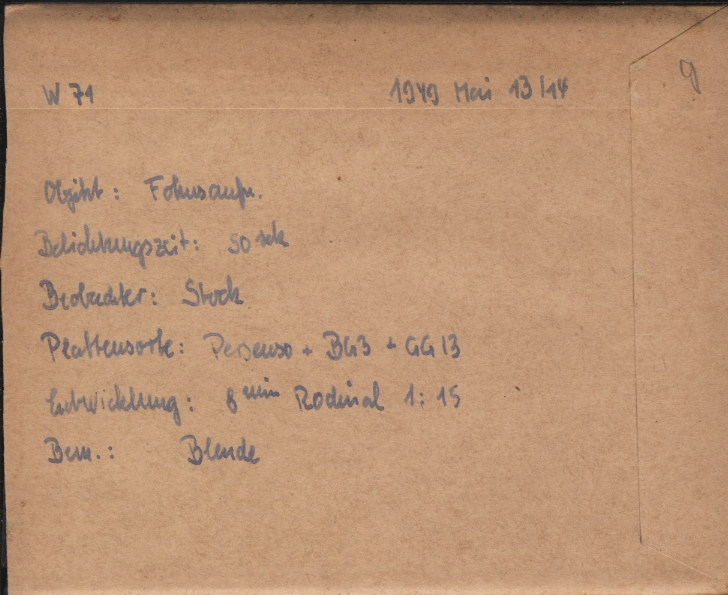 W 71 1949 Mai 13/14 9
Objekt: Fokusaufn.
Belichtungszeit: 50 sek
Beobachter: Stock
Plattensorte: Persenso + BG3 + GG13
Entwicklung: 8 min Rodinal 1:15
Bem.: Blende